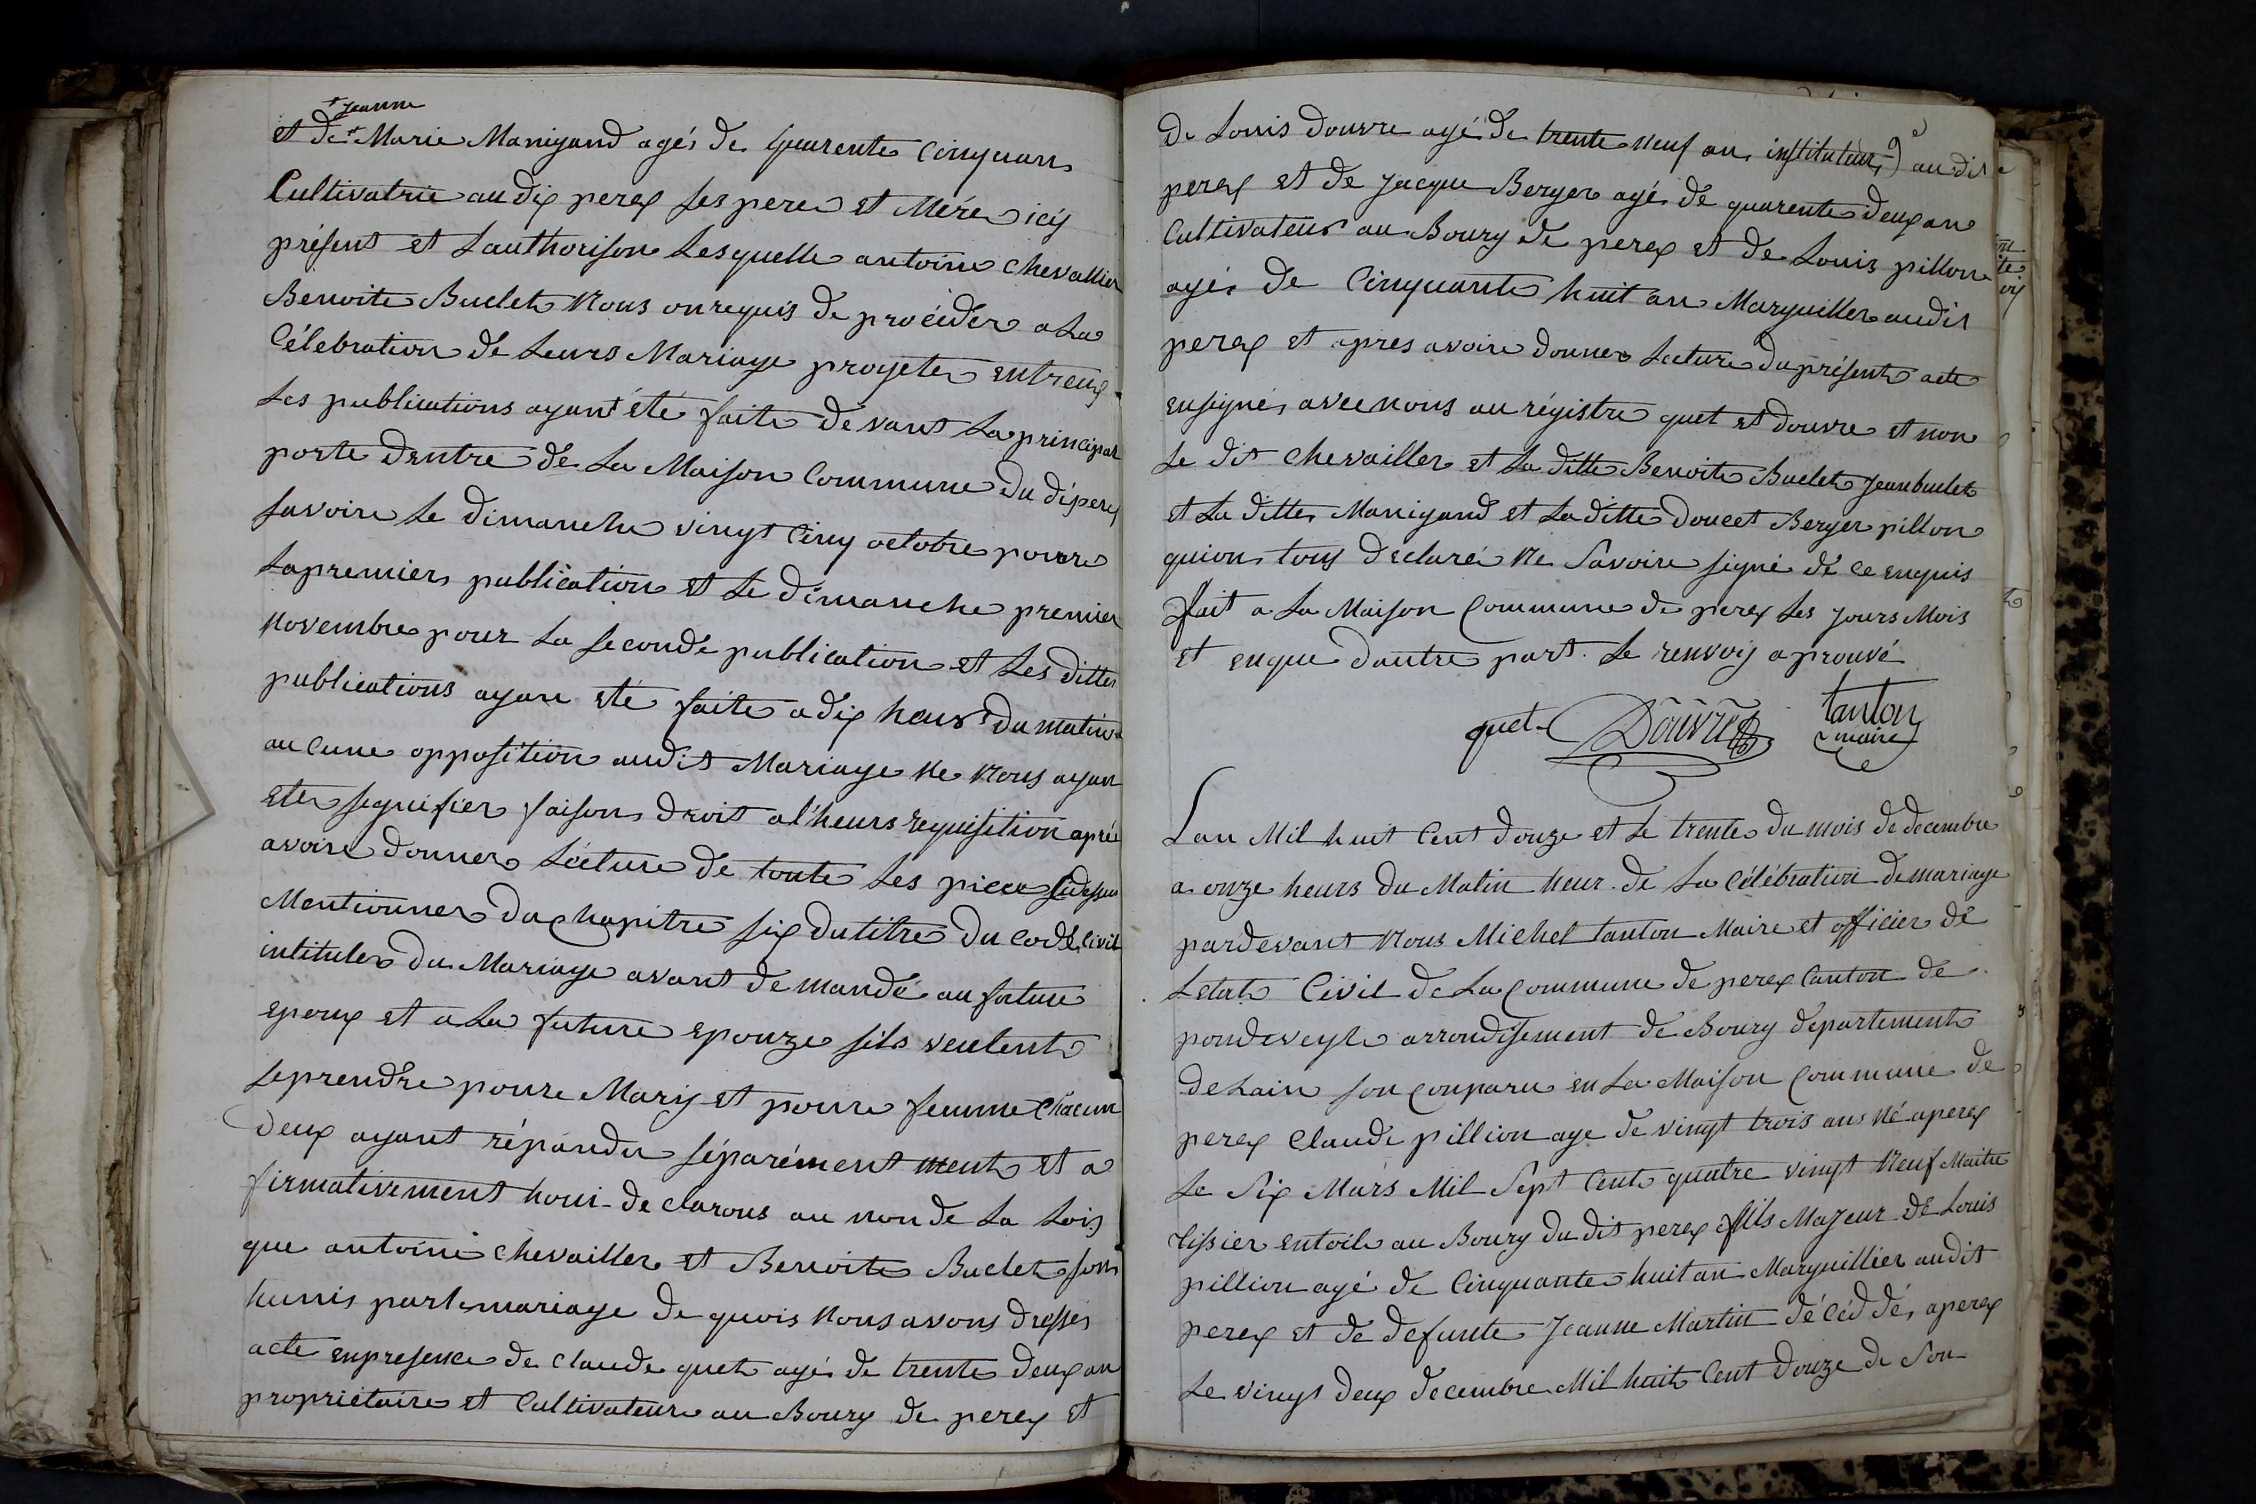 + Jeanne
et de + Marie Manigand agés de quarente cinquans
Cultivatrice au dix perex ses pere et Mére icy
présent et Lauthorison Lesquelle antoine chevallier
Benoite Buclet Nous on requis de procéder a La
Célébration de Leurs Mariage progeter entreux
Les publications ayant été faite devant La principal
porte dentre de La Maison Commune du diperex
Savoire Le dimanche vingt Cinq octobre pour
La premier publication et Le dimanche premier
Novembre pour La seconde publication et Les dittes
publications ayan eté faite a dix heurs du matin
aucune opposition audit Mariage Ne Nous ayan
eter signifier faison droit a l'heurs requisition aprés
avoire donner Lécture de toute Les piece Cidessus
Mentionner du Chapitre six du titre du Code Civil
intituler du Mariage avant demandé au future
epoux et a La future epouze sils veulent
se prendre poure Mary et poure femme Chacun
deux ayant répondu séparément ment et a
firmativement houi declarons au non de La Lois
que antoine chevailler et Benoite Buclet son
hunis par le mariage de quois Nous avons dresser
acte enpresence de Claude quet agé de trente deux an
propriétaire et Cultivateur au Bourg de perex et
de Louis douvre agé de trente neuf an instituteur au dit
perex et de Jacque Berger agé de quarente deux an
Cultivateur au Bourg de perex et de Louis pillon
agés de Cinquante huit an Marguiller audit
perex et apres avoire donner Lecture du présent acte
ensignés avec nous au régistre quet et douvre et non
Le dit chevailler et La ditte Benoite Buclet Jean buclet
et La dittes Manigand et La ditte doucet Berger pillon
quion tous declaré Ne Savoire signé de ce enquis
fait a La Maison Commune de perex Les Jours Mois
et enque dautre part. Le renvoy aprouvé
quet Douvre tanton
maire
Lan Mil huit Cent douze et Le trente du mois de decembre
a onze heurs du Matin heur de La Célébration de mariage
pardevant Nous Michel tanton Maire et officier de
Letat Civil de La Commune de perex Canton de
pondeveyle arrondisement de Bourg département
de Lain son Conparu en La Maison Commune de
perex Claude pillion age de vingt trois ans Né aperex
Le Six Mars Mil Sept Cent quatre vingt Neuf Maitre
tissier entoile au Bourg du dit perex fils Majeur de Louis
pillion agé de Cinquante huit an Marguillier audit
perex et de defunte Jeanne Martin décéddés aperex
Le vingt deux decembre Mil huit Cent douze de Son